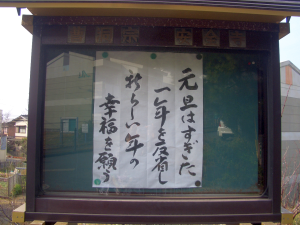 元旦はすぎた
一年を反省し
新らしい年の
幸福を願う